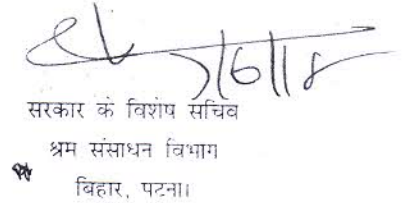 सरकार के विशेष सचिव
श्रम संसाधन विभाग
बिहार, पटना।